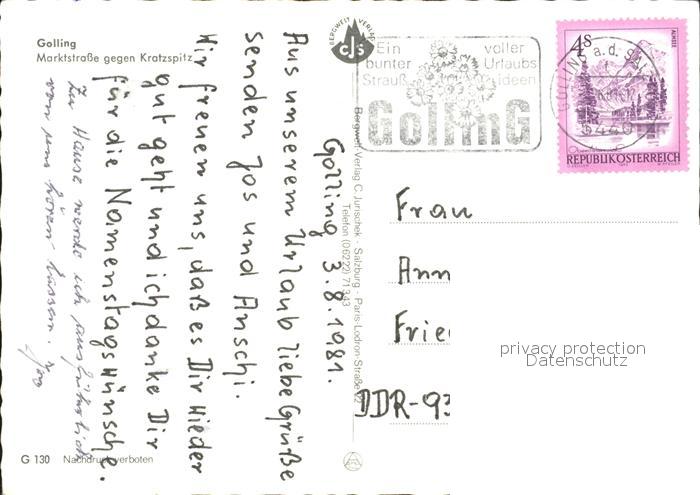 Golling
Marktstraße gegen Kratzspitz
Golling 3.8.1981.
Aus unserem Urlaub liebe Grüße
senden Jos und Anschi.
Wir freuen uns, daß es Dir wieder
gut geht und ich danke Dir
für die Namenstagswünsche.
Zu Hause werde ich ausführlich
von uns hören lassen.
G 130 Nachdruck verboten
BERGWELT VERLAG
cjs
Bergwelt-Verlag C. Jurischek - Salzburg - Paris-Lodron-Straße 22
Telefon (06222) 71343
Ein voller
bunter Urlaubs
Strauß ideen
GollinG
GOLLING a.d. SALZ
5440
ALMSEE
4S
REPUBLIK ÖSTERREICH
Frau
Ann
Frie
DDR-93
privacy protection
Datenschutz